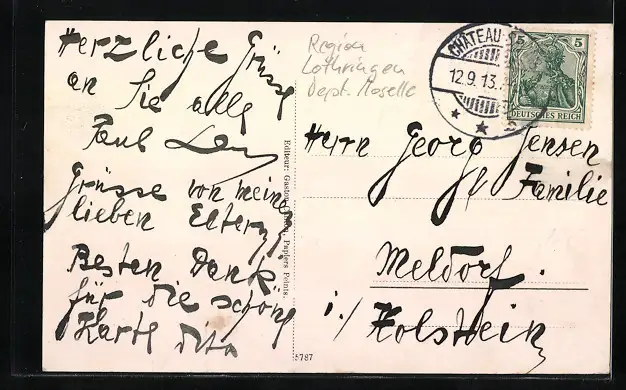 Herzliche Grüsse
an Sie alle
Paul
Grüsse von meinen
lieben Eltern
Besten Dank
für die schöne
Karte
Region
Lothringen
Dept. Moselle
CHÂTEAU-
12.9.13.
5 5
DEUTSCHES REICH
Herrn Georg Jensen
Familie
Meldorf.
i./ Holstein
Editeur: Gaston Papiers Peints.
5787